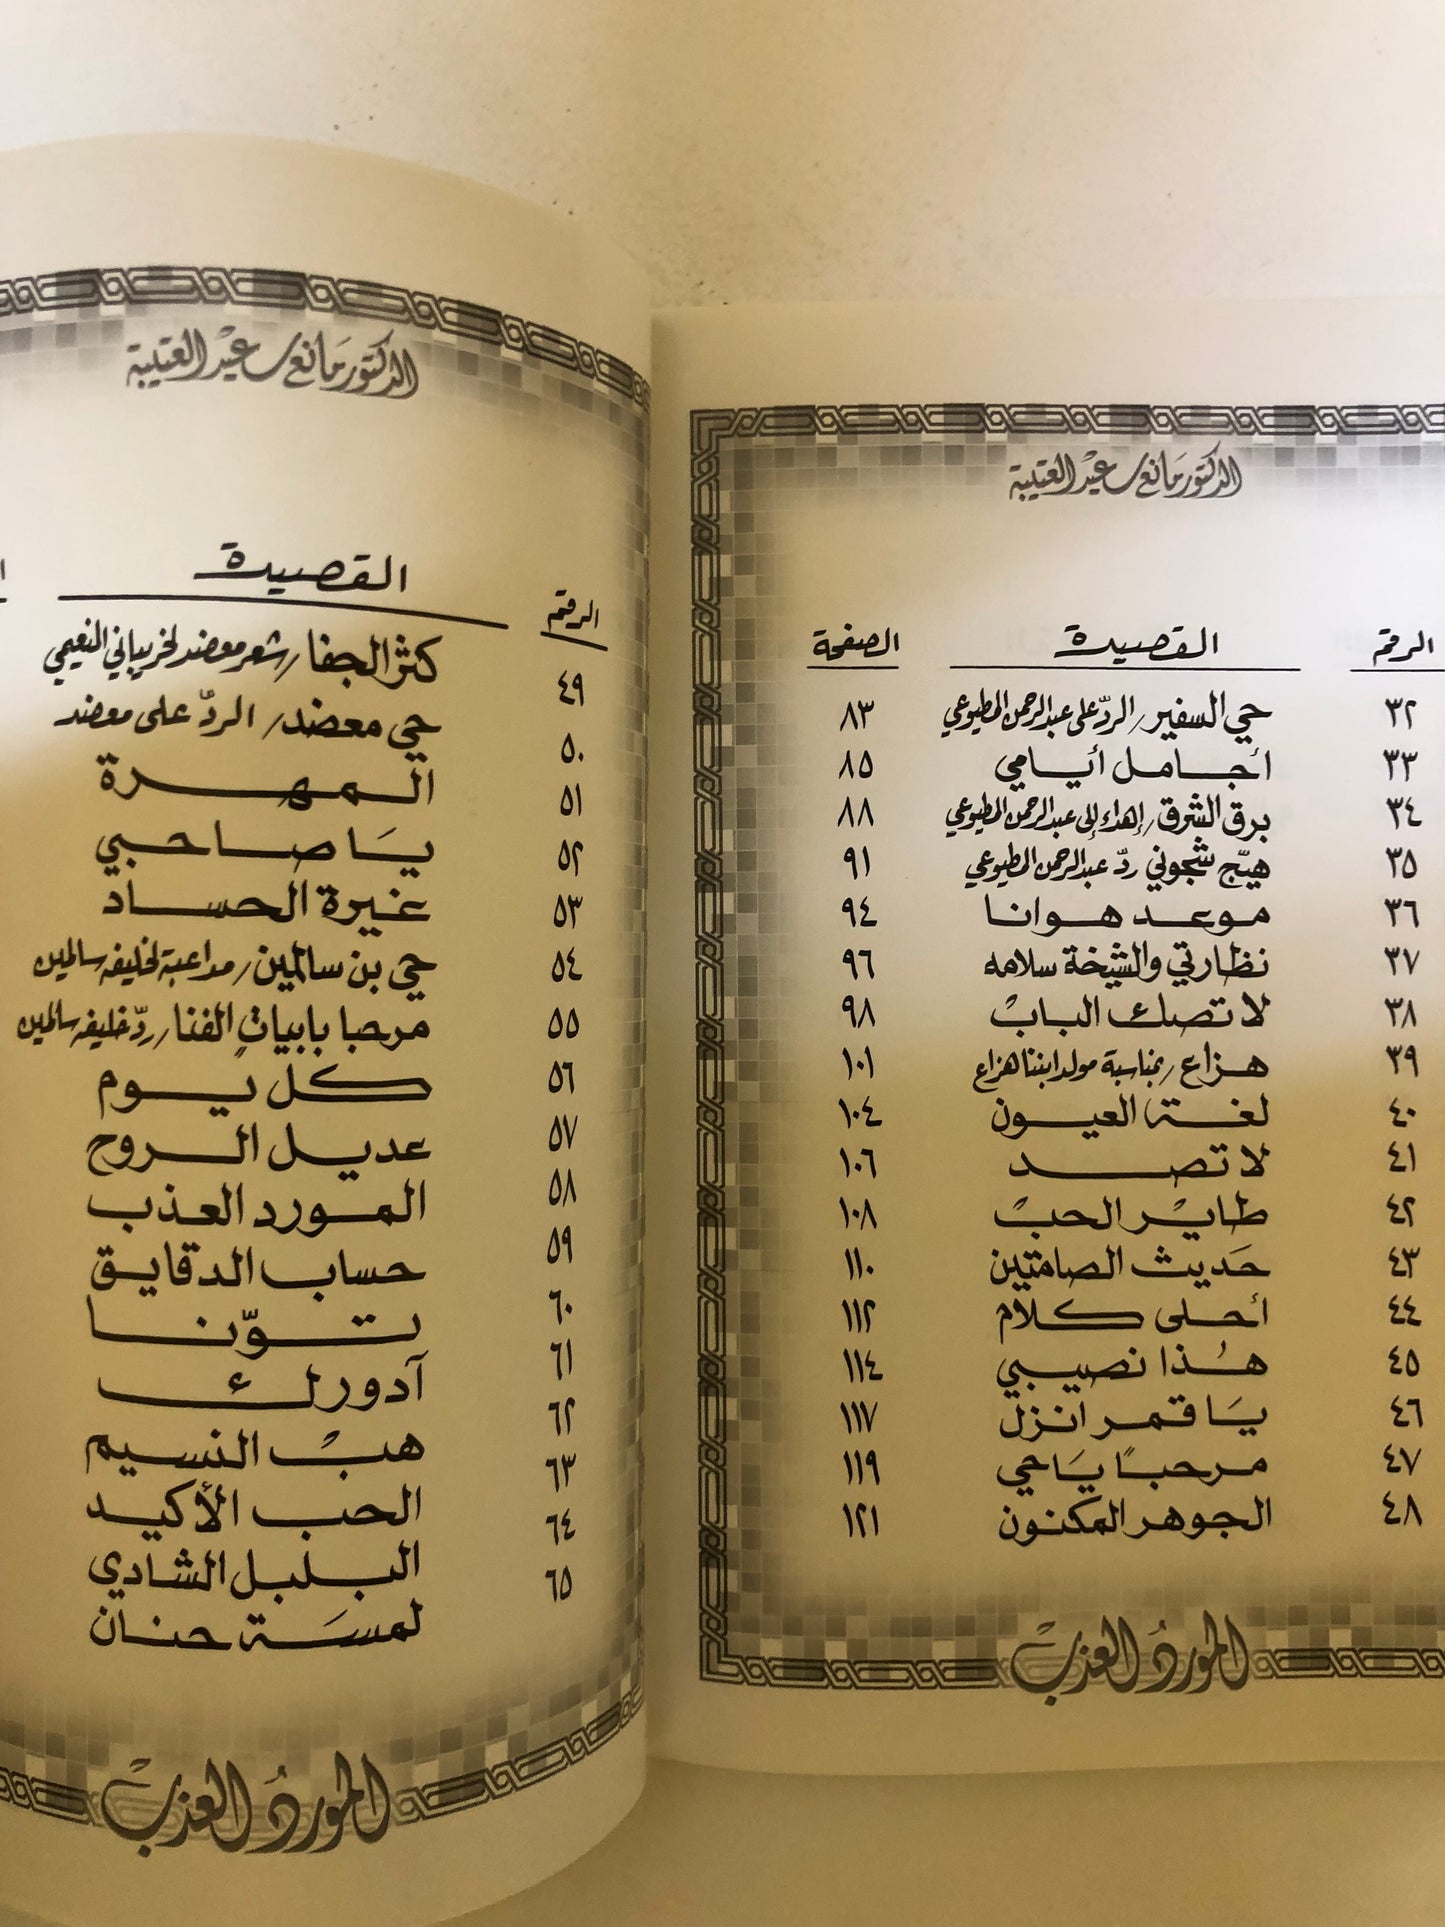 الدكتور مانع سعيد العتيبة
الرقم القصيدة الصفحة
٣٢ حي السفير / الردّ على عبدالرحمن المطيوعي ٨٣
٣٣ أجامل أيامي ٨٥
٣٤ برق الشرق / إهداء إلى عبدالرحمن المطيوعي ٨٨
٣٥ هيّج شجوني ردّ عبدالرحمن المطيوعي ٩١
٣٦ موعد هوانا ٩٤
٣٧ نظارتي والشيخة سلامه ٩٦
٣٨ لا تصك الباب ٩٨
٣٩ هزاع / بمناسبة مولد ابننا هزاع ١٠١
٤٠ لغة العيون ١٠٤
٤١ لا تصد ١٠٦
٤٢ طاير الحب ١٠٨
٤٣ حديث الصامتين ١١٠
٤٤ أحلى كلام ١١٢
٤٥ هذا نصيبي ١١٤
٤٦ يا قمر انزل ١١٧
٤٧ مرحباً يا حي ١١٩
٤٨ الجوهر المكنون ١٢١
المورد العذب
الدكتور مانع سعيد العتيبة
الرقم القصيدة
٤٩ كثر الجفا / شعر معضد لخريباني النعيمي
٥٠ حي معضد / الردّ على معضد
٥١ المهرة
٥٢ يا صاحبي
٥٣ غيرة الحساد
٥٤ حي بن سالمين / مداعبة لخليفه سالمين
٥٥ مرحبا بابيات الفنا / ردّ خليفه سالمين
٥٦ كل يوم
٥٧ عديل الروح
٥٨ المورد العذب
٥٩ حساب الدقايق
٦٠ توّنا
٦١ آدورلك
٦٢ هب النسيم
٦٣ الحب الأكيد
٦٤ البلبل الشادي
٦٥ لمسة حنان
المورد العذب